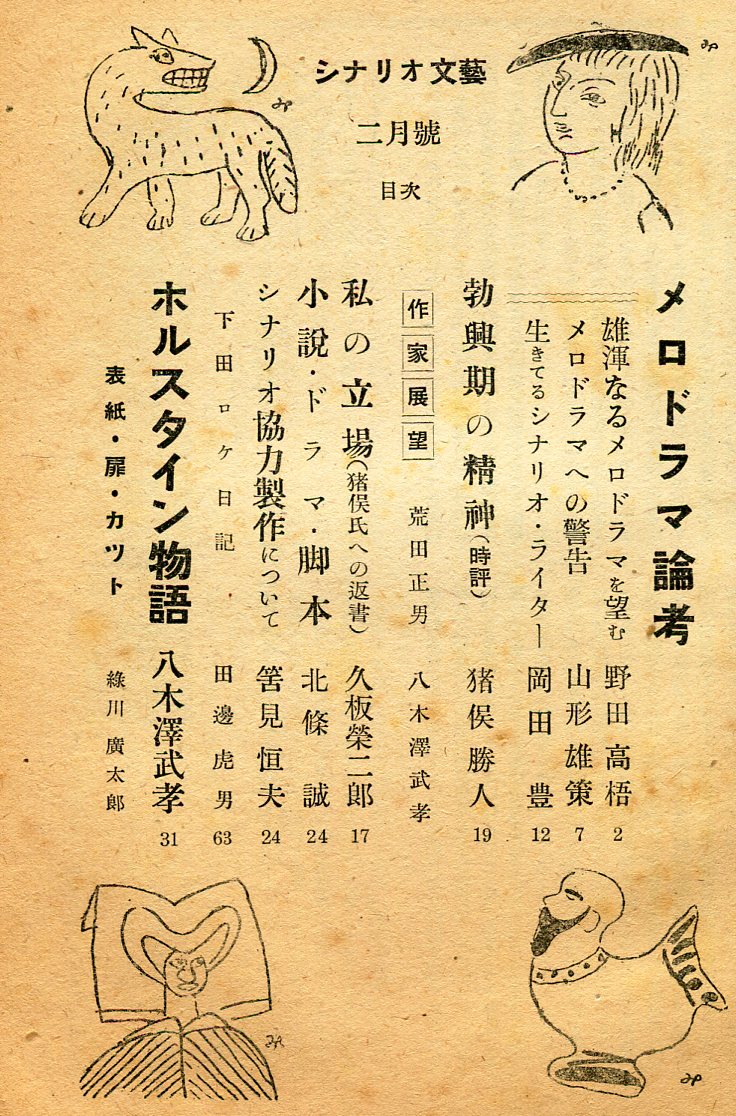 シナリオ文藝
二月號
目次
メロドラマ論考
雄渾なるメロドラマを望む 野田高梧 2
メロドラマへの警告 山形雄策 7
生きてるシナリオ・ライター 岡田豊 12
勃興期の精神(時評) 猪俣勝人 19
作家展望 荒田正男 八木澤武孝
私の立場(猪俣氏への返書) 久板榮二郎 17
小説・ドラマ・脚本 北條誠 24
シナリオ協力製作について 筈見恒夫 24
下田ロケ日記 田邊虎男 63
ホルスタイン物語 八木澤武孝 31
表紙・扉・カツト 綠川廣太郎